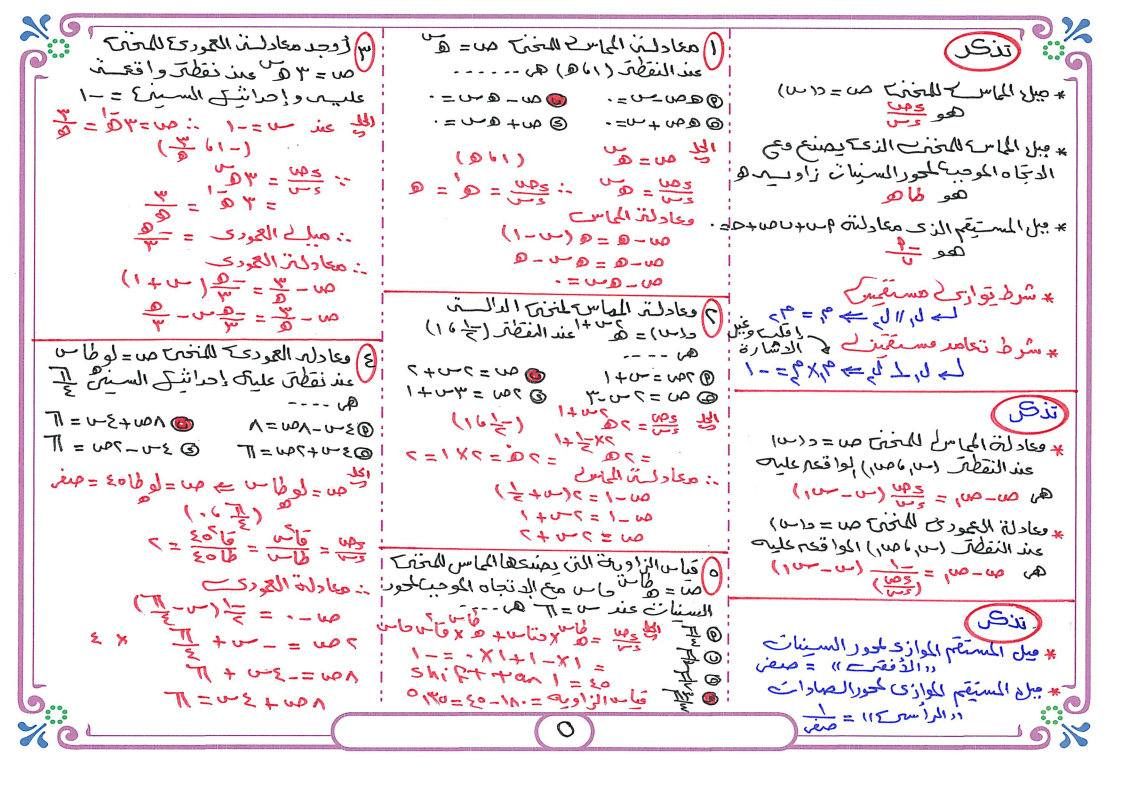 تذكر
* ميل المماس للمنحنى ص = د(س)
هو ءص/ءس
* ميل المماس للمنحنى الذى يصنع مع
الاتجاه الموجب لمحور السينات زاوية ه
هو طاه
* ميل المستقيم الذى معادلته ٢س+ب ص+حـ=٠
هو
* شرط توازى مستقيمين
ل١ // ل٢ ⇐ م١ = م٢
* شرط تعامد مستقيمين
اقلب وغير الاشارة
ل١ ⊥ ل٢ ⇐ م١ × م٢ = -١
تذكر
* معادلة المماس للمنحنى ص = د(س)
عند النقطة (س١، ص١) الواقعة عليه
هى ص-ص١ = ءص/ءس (س - س١)
* معادلة العمودى للمنحنى ص = د(س)
عند النقطة (س١، ص١) الواقعة عليه
هى ص-ص١ = -١/(ءص/ءس) (س - س١)
تذكر
* ميل المستقيم الموازى لمحور السينات
"الأفقى" = صفر
* ميل المستقيم الموازى لمحور الصادات
"الرأسى" = ١/صفر
١ معادلة المماس للمنحنى ص = هـ^س
عند النقطة (١، هـ) هى ......
أ هـ ص - س = ٠
ب ص - هـ س = ٠
ج هـ ص + س = ٠
د ص + هـ س = ٠
الحل ص = هـ^س (١، هـ)
ءص/ءس = هـ^س ∴ ءص/ءس = هـ^١ = هـ
معادلة المماس
ص - هـ = هـ (س - ١)
ص - هـ = هـ س - هـ
ص - هـ س = ٠
٢ معادلة المماس لمنحنى الدالة
د(س) = هـ^(٢س+١) عند النقطة (-١/٢، ١)
هى ....
أ ٢ص = س + ١
ب ص = ٢س + ٢
ج ص = ٢س - ٣
د ٢ص = ٣س + ١
الحل ءص/ءس = ٢هـ^(٢س+١) (-١/٢، ١)
= ٢هـ^(٢×-١/٢+١) = ٢هـ^٠ = ٢×١ = ٢
∴ معادلة المماس
ص - ١ = ٢(س + ١/٢)
ص - ١ = ٢س + ١
ص = ٢س + ٢
٥ قياس الزاوية التى يصنعها المماس للمنحنى
ص = هـ^طاس حاس مع الاتجاه الموجب لمحور
السينات عند س = π هى .....
الحل ءص/ءس = هـ^طاس × حتاس + هـ^طاس × قا٢س حاس
= ١×-١ + ١×٠ = -١
shift tan 1 = ٤٥
قياس الزاوية = ١٨٠ - ٤٥ = ١٣٥°
٣ أوجد معادلة العمودى للمنحنى
ص = ٣هـ^س عند نقطة واقعة
عليه وإحداثيها السينى = -١
الحل عند س = -١ ∴ ص = ٣هـ^-١ = ٣/هـ
(-١، ٣/هـ)
∵ ءص/ءس = ٣هـ^س
= ٣هـ^-١ = ٣/هـ
∴ ميل العمودى = -هـ/٣
∴ معادلة العمودى
ص - ٣/هـ = -هـ/٣ (س + ١)
ص - ٣/هـ = -هـ/٣ س - هـ/٣
٤ معادلة العمودى للمنحنى ص = لو_هـ طاس
عند نقطة عليه إحداثيها السينى π/٤
هى ....
أ ٤س - ٨ص = ٨
ب ٨ص + ٤س = π
ج ٤س + ٢ص = π
د ٤س - ٢ص = π
الحل ص = لو_هـ طاس ⇐ ص = لو_هـ طا٤٥ = صفر
(π/٤، ٠)
ءص/ءس = قا٢س/طاس = قا٢٤٥/طا٤٥ = ٢
∴ معادلة العمودى
ص - ٠ = -١/٢ (س - π/٤)
٢ص = -س + π/٤ × ٤
٨ص = -٤س + π
٨ص + ٤س = π
٥